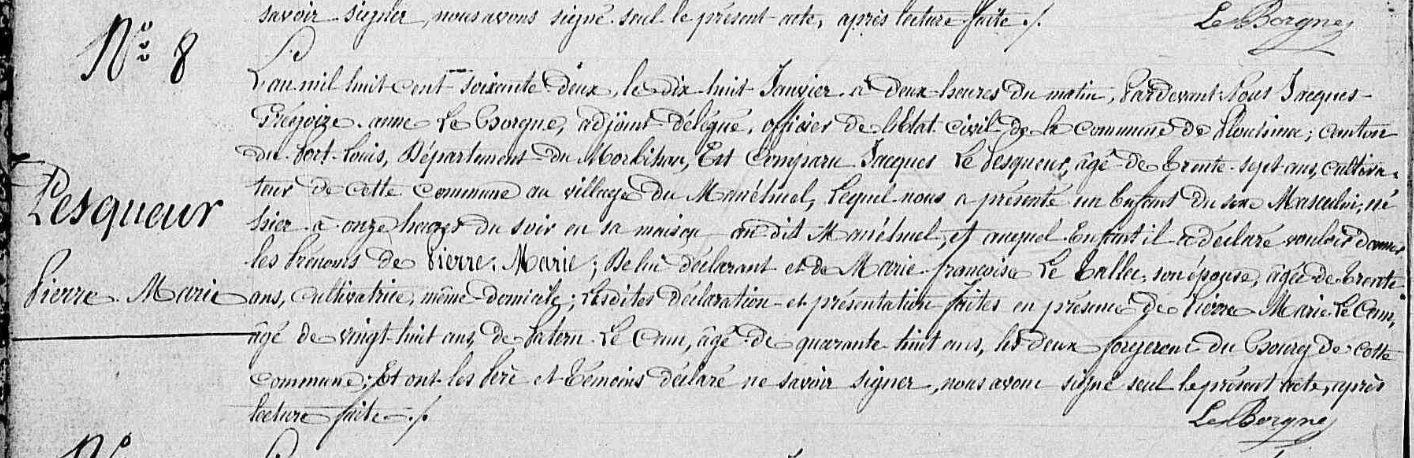 savoir signer, nous avons signé seul le présent acte, après lecture faite ./.
Le Borgne
N.° 8
L'an mil huit cent soixante deux, le dix huit Janvier à deux heures du matin, Pardevant Nous Jacques
Grégoire anne Le Borgne, adjoint délégué, officier de l'Etat civil de la commune de Plouhinec, canton
du Port Louis, Département du Morbihan, Est Comparu Jacques Le Pesqueur, âgé de trente sept ans, cultiva-
Pesqueur
teur de cette commune au village du Manémel, Lequel nous a présenté un Enfant du sexe Masculin, né
hier à onze heures du soir en sa maison au dit Manémel, et auquel Enfant il a déclaré vouloir donner
les Prénoms de Pierre Marie; De lui déclarant et de Marie françoise Le Tallec, son épouse, âgée de trente
Pierre Marie
ans, cultivatrice, même domicile; Lesdites déclaration et présentation faites en présence de Pierre Marie Le
âgé de vingt huit ans, de Patern Le âgé de quarante huit ans, les deux forgerons du Bourg de cette
commune; Et ont les Père et Témoins déclaré ne savoir signer, nous avons signé seul le présent acte, après
lecture faite ./.
Le Borgne
N.°